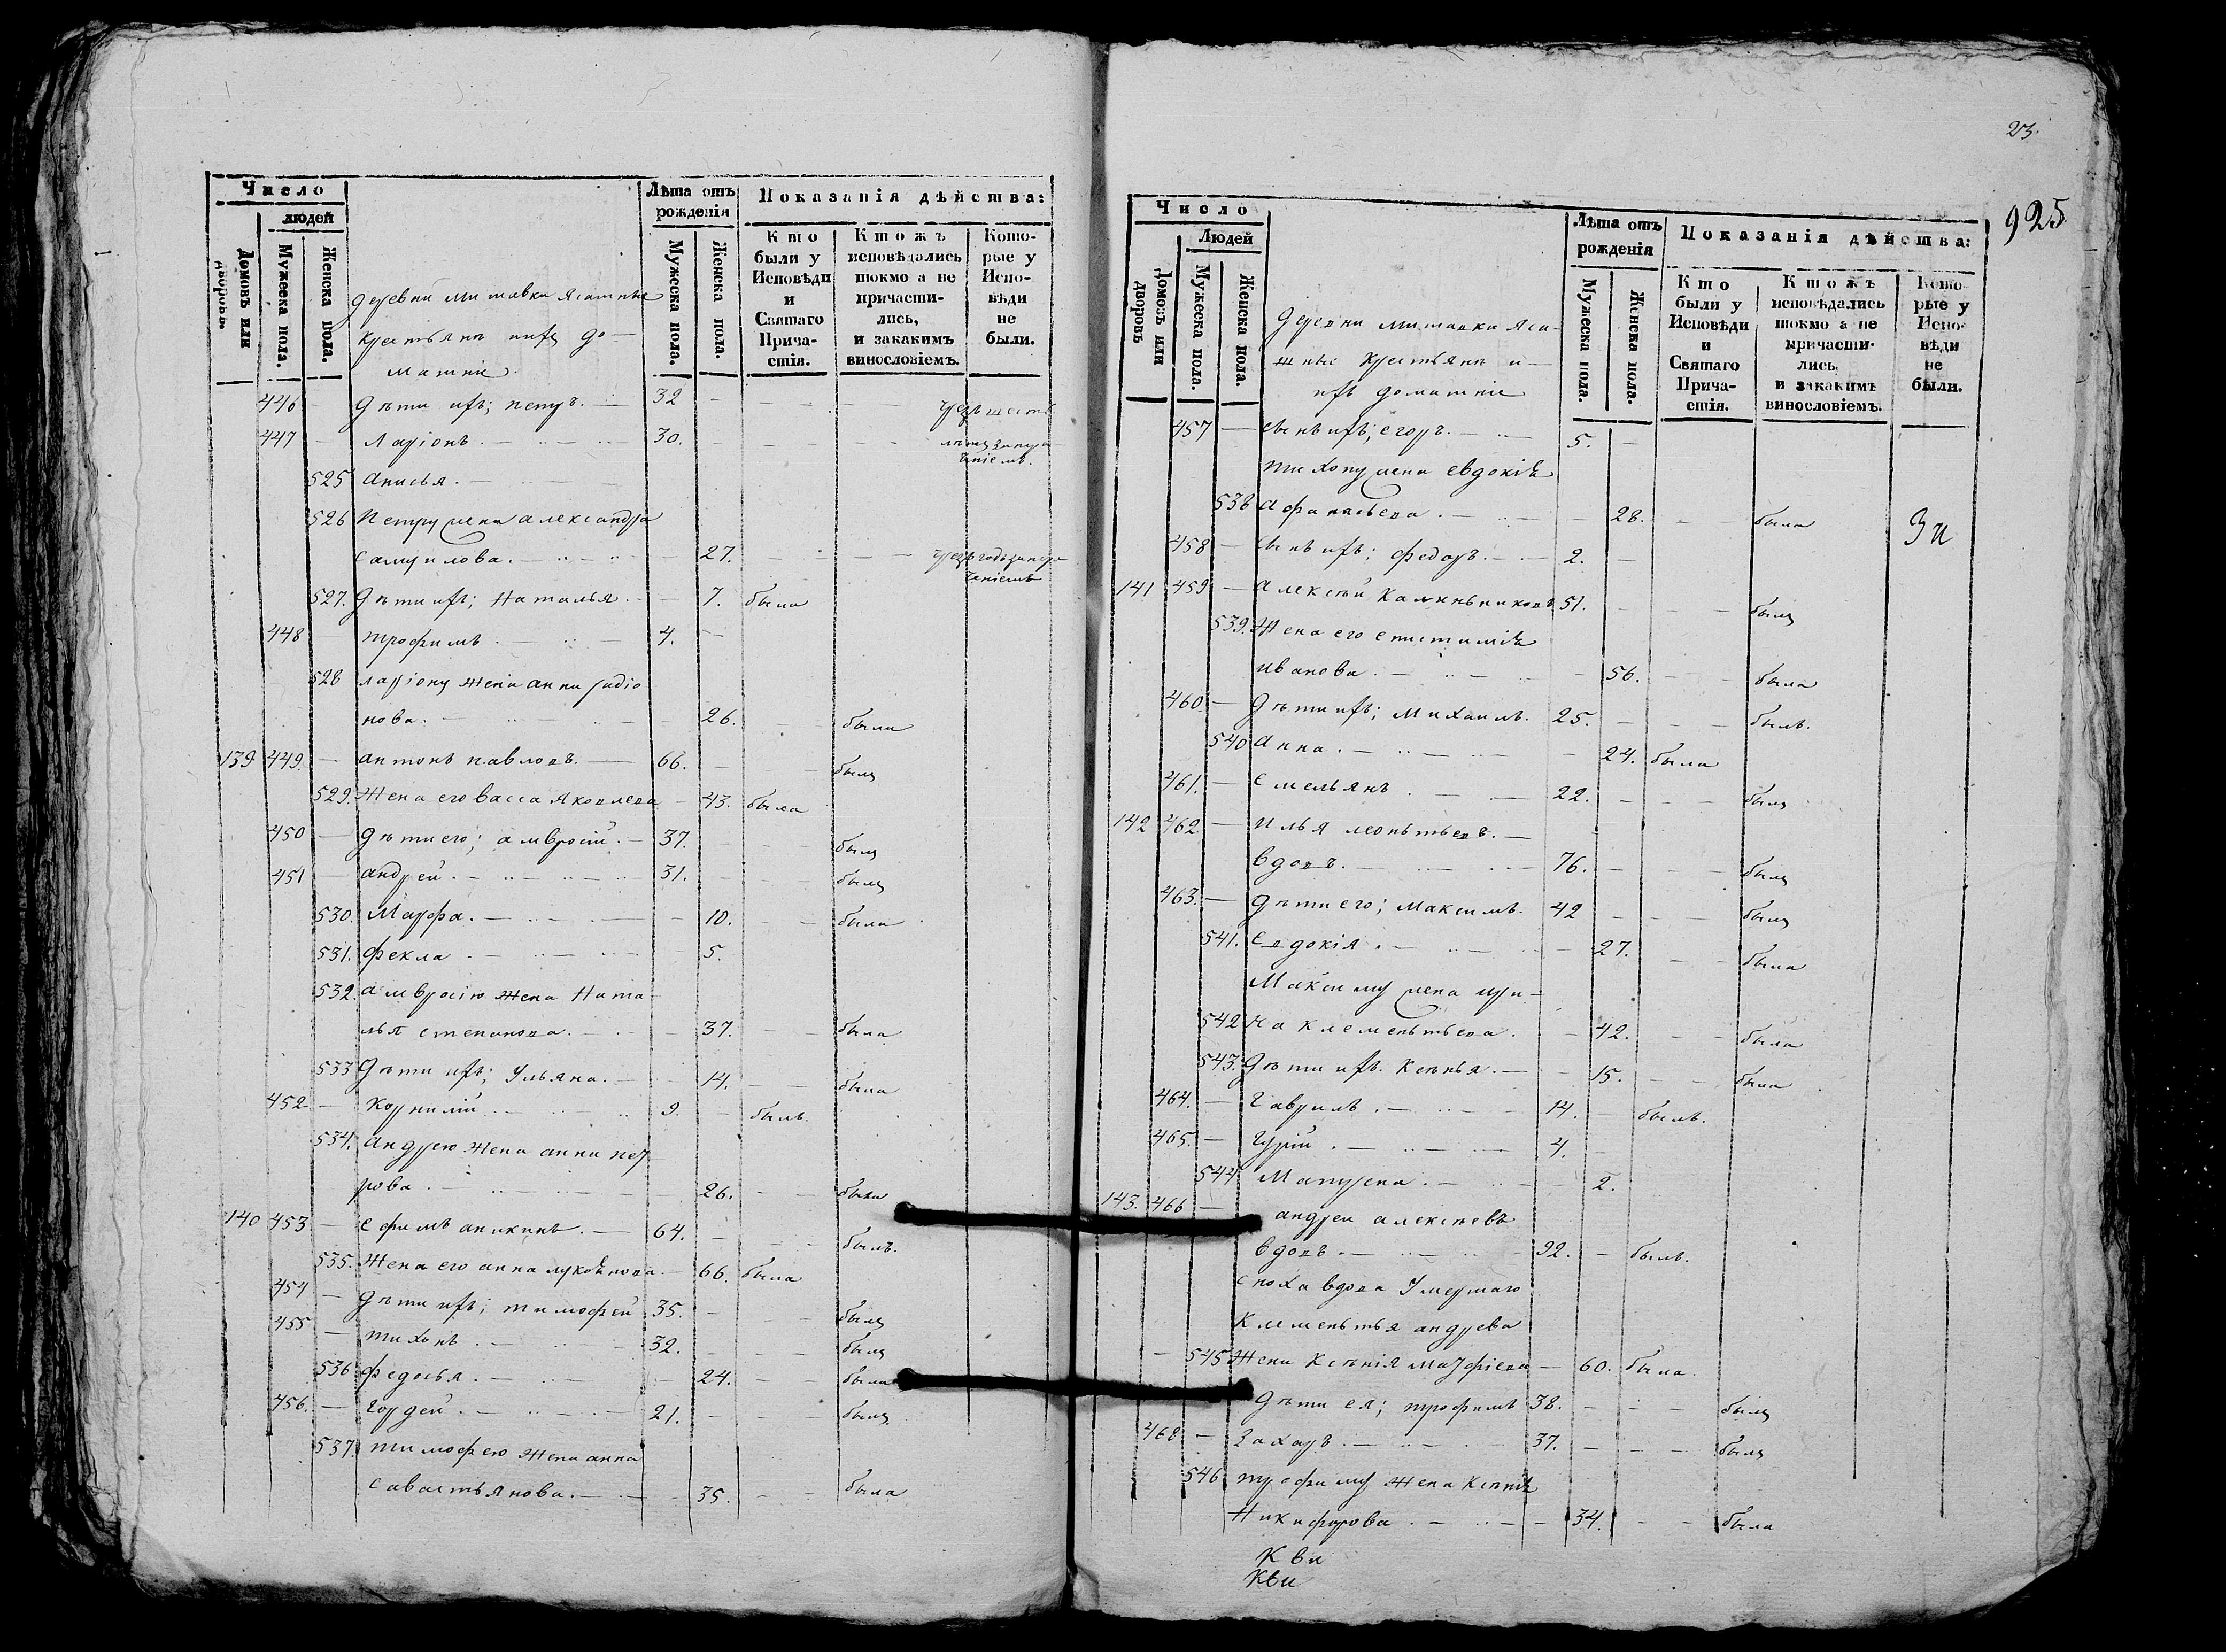 Число
людей
Домовъ или дворовъ.
Мужеска пола.
Женска пола.
Лѣта отъ рожденія
Мужеска пола.
Женска пола.
Показанія дѣйства:
Кто были у Исповѣди и Святаго Причастія.
Ктожъ исповѣдались токмо а не причастились, и закакимъ винословіемъ.
Которые у Исповѣди не были.
деревни Митавки Ясашные
крестьянъ ихъ до-
машніе.
446 — дѣти ихъ; петръ. — 32
447 — Ларіонъ. — 30.
525 анисья. —
526 Петру жена александра
самуилова. — 27.
527. дѣти ихъ; Наталья. — 7. была
448 — трофимъ — 4. —
528 ларіону жена анна радіо
нова. — 26. — была
139 449. — антонъ павловъ. — 66. — былъ
529. Жена его васса яковлева — 43. была
450 — дѣти его; амвросій. — 37. — былъ
451 — андрей. — 31. — былъ
530. Марфа. — 10. — была
531. фекла — 5.
532. амвросію жена Ната
лья степанова. — 37. — была
533 дѣти ихъ; Ульяна. — 14. — была
452 — корнилій — 9. — былъ.
534. андрею жена анна пет
рова. — 26. — была
140 453 — ефимъ аникинъ. — 64. — былъ.
535. Жена его анна лукоянова — 66. была
454 — дѣти ихъ; тимофей 35. — былъ
455 — тихонъ. — 32. — былъ
536 федосья. — 24. — была
456. — гордей. — 21. — былъ
537. тимофею жена анна
савастьянова. — 35. — была
23.
925
Число
Людей
Домовъ или дворовъ
Мужеска пола.
Женска пола.
Лѣта отъ рожденія
Мужеска пола.
Женска пола.
Показанія дѣйства:
Кто были у Исповѣди и Святаго Причастія.
Ктожъ исповѣдались токмо а не причастились, и закакимъ винословіемъ.
Которые у Исповѣди не были.
деревни Митавки Яса-
шные крестьянъ и-
ихъ домашніе
457 — сынъ ихъ; егоръ. — 5. —
тихону жена евдокія
538 афанасьева. — 28. — была
458 — сынъ ихъ; федоръ. — 2. —
141 459 — алексѣй Калинниковъ 51. — былъ
539. Жена его епистимія
иванова. — 56. — была
460. — дѣти ихъ; михаилъ. 25. — былъ.
540 анна. — 24. была
461. — емельянъ. — 22. — былъ
142 462 — илья леонтьевъ. —
вдовъ. — 76. — былъ
463. — дѣти его; максимъ. 42 — былъ
541. евдокія. — 27. — была
Максиму жена ири-
542 на клементьева. — 42. — была
543. дѣти ихъ. Ксенья. — 15. — была
464. — гаврилъ. — 14. — былъ.
465. — гурій. — 4. —
544 Матрена. — 2.
143. 466 — андреи алексѣевъ
вдовъ. — 92. — былъ.
сноха вдова умершаго
клементья андрева
— 545 Жена Ксенія матфіева — 60. была.
дѣти ея; трофимъ 38. — былъ
468 — Захаръ. — 37. — былъ
546 трофиму жена Ксенія
Никифорова. — 34. — была